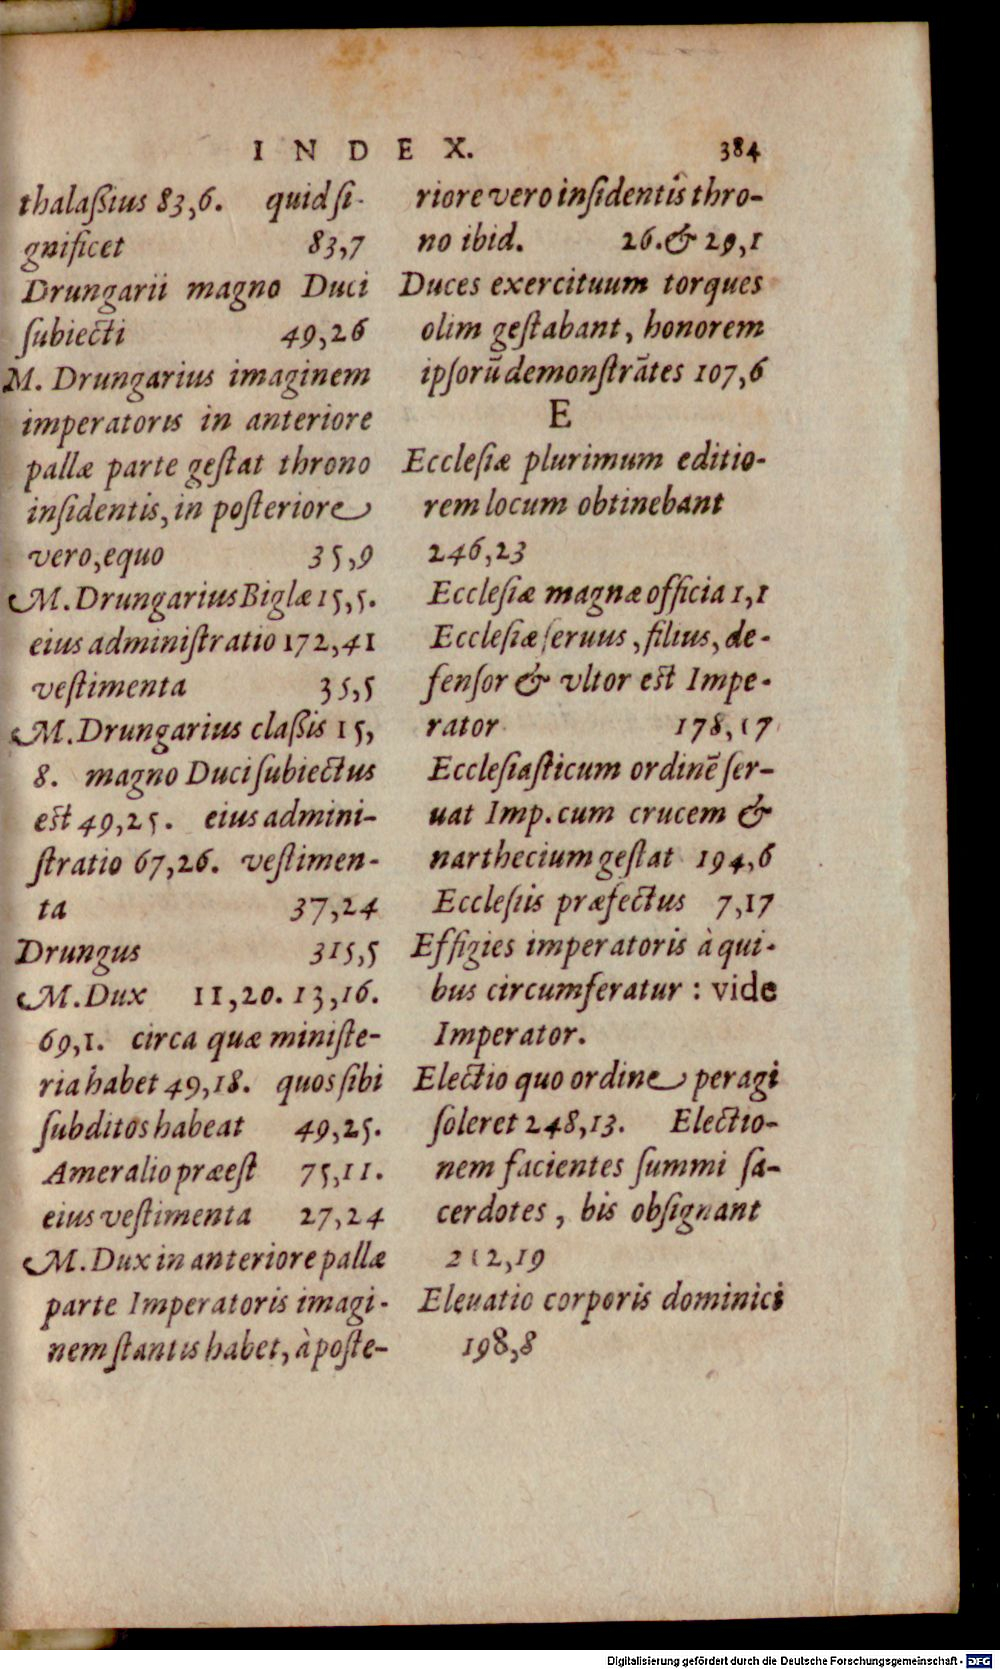 INDEX. 384
thalaßius 83,6. quid ſi-
gnificet 83,7
Drungarii magno Duci
ſubiecti 49,26
M. Drungarius imaginem
imperatoris in anteriore
pallæ parte geſtat throno
inſidentis, in poſteriore
vero, equo 35,9
M. Drungarius Biglæ 15,5.
eius adminiſtratio 172,41
veſtimenta 35,5
M. Drungarius claßis 15,
8. magno Duci ſubiectus
est 49,25. eius admini-
ſtratio 67,26. veſtimen-
ta 37,24
Drungus 315,5
M. Dux 11,20. 13,16.
69,1. circa quæ miniſte-
ria habet 49,18. quos ſibi
ſubditos habeat 49,25.
Ameralio præeſt 75,11.
eius veſtimenta 27,24
M. Dux in anteriore pallæ
parte Imperatoris imagi-
nem ſtantis habet, à poſte-
riore vero inſidentis thro-
no ibid. 26. & 29,1
Duces exercituum torques
olim geſtabant, honorem
ipſorũ demonſtrãtes 107,6
E
Eccleſiæ plurimum editio-
rem locum obtinebant
246,23
Eccleſiæ magnæ officia 1,1
Eccleſiæ ſeruus, filius, de-
fenſor & vltor est Impe-
rator 178,17
Eccleſiaſticum ordinẽ ſer-
uat Imp. cum crucem &
narthecium geſtat 194,6
Eccleſiis præfectus 7,17
Effigies imperatoris à qui-
bus circumferatur : vide
Imperator.
Electio quo ordine peragi
ſoleret 248,13. Electio-
nem facientes ſummi ſa-
cerdotes, bis obſignant
212,19
Eleuatio corporis dominici
198,8
Digitalisierung gefördert durch die Deutsche Forschungsgemeinschaft - DFG